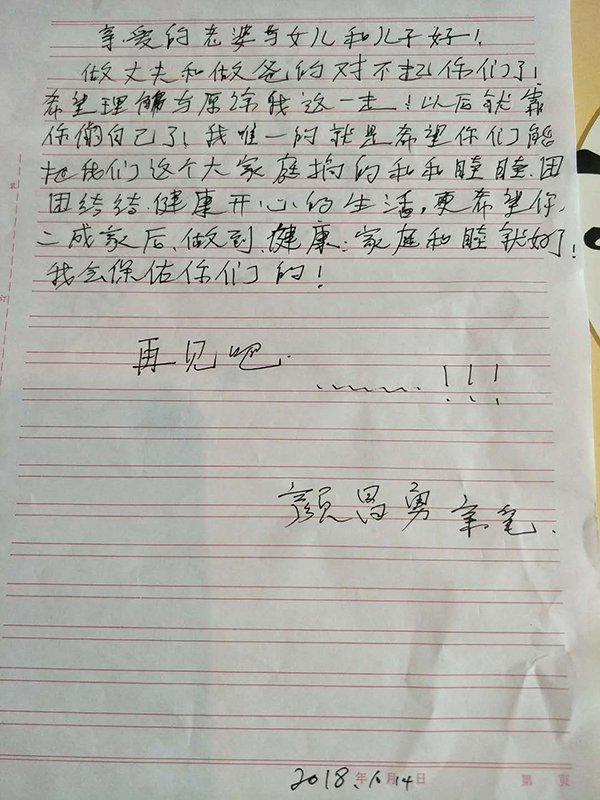 亲爱的老婆与女儿和儿子好!
做丈夫和做爸的对不起你们了!
希望理解与原谅我这一走!以后就靠
你们自己了!我唯一的就是希望你们能
把我们这个大家庭搞的和和睦睦.团
团结结.健康开心的生活,更希望你
二成家后.做到.健康:家庭和睦就好了!
我会保佑你们的!
再见吧.
……!!!
颜昌勇 亲笔.
2018.6.14
年 月 日
第 页
订